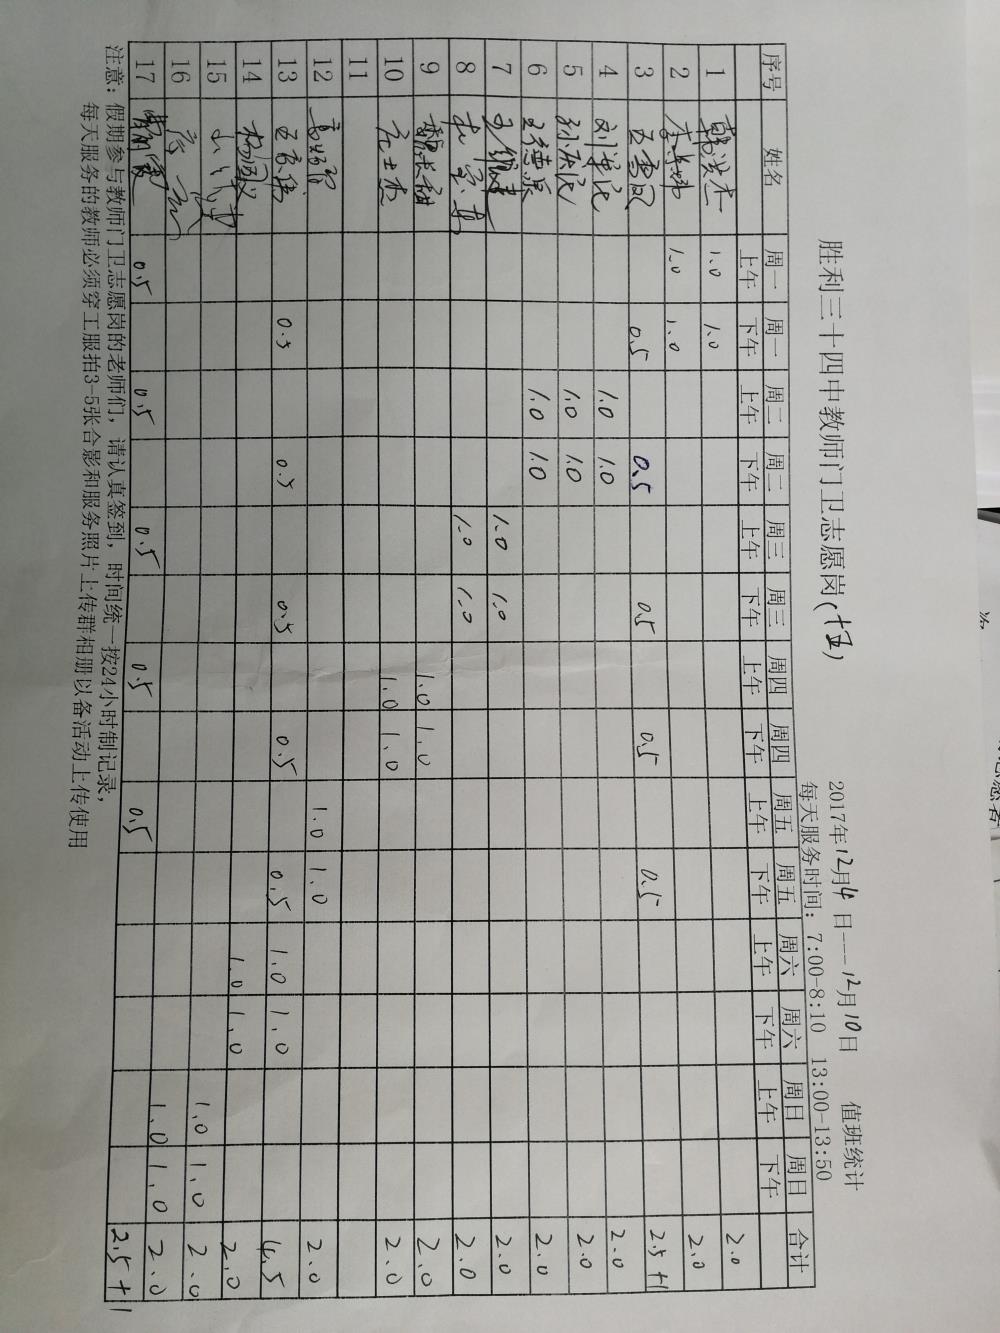 胜利三十四中教师门卫志愿岗(十五)
2017年12月4日---12月10日 值班统计
每天服务时间: 7:00-8:10 13:00-13:50
序号 姓名 周一上午 周一下午 周二上午 周二下午 周三上午 周三下午 周四上午 周四下午 周五上午 周五下午 周六上午 周六下午 周日上午 周日下午 合计
1 韩洪杰 1.0 1.0 2.0
2 1.0 1.0 2.0
3 王雪凤 0.5 0.5 0.5 0.5 0.5 2.5+1
4 1.0 1.0 2.0
5 1.0 1.0 2.0
6 王德泉 1.0 1.0 2.0
7 王维建 1.0 1.0 2.0
8 1.0 1.0 2.0
9 1.0 1.0 2.0
10 1.0 1.0 2.0
11
12 1.0 1.0 2.0
13 0.5 0.5 0.5 0.5 0.5 1.0 1.0 4.5
14 1.0 1.0 2.0
15 1.0 1.0 2.0
16 1.0 1.0 2.0
17 0.5 0.5 0.5 0.5 0.5 2.5+1
注意: 假期参与教师门卫志愿岗的老师们, 请认真签到, 时间统一按24小时制记录,
每天服务的教师必须穿工服拍3-5张合影和服务照片上传群相册以备活动上传使用